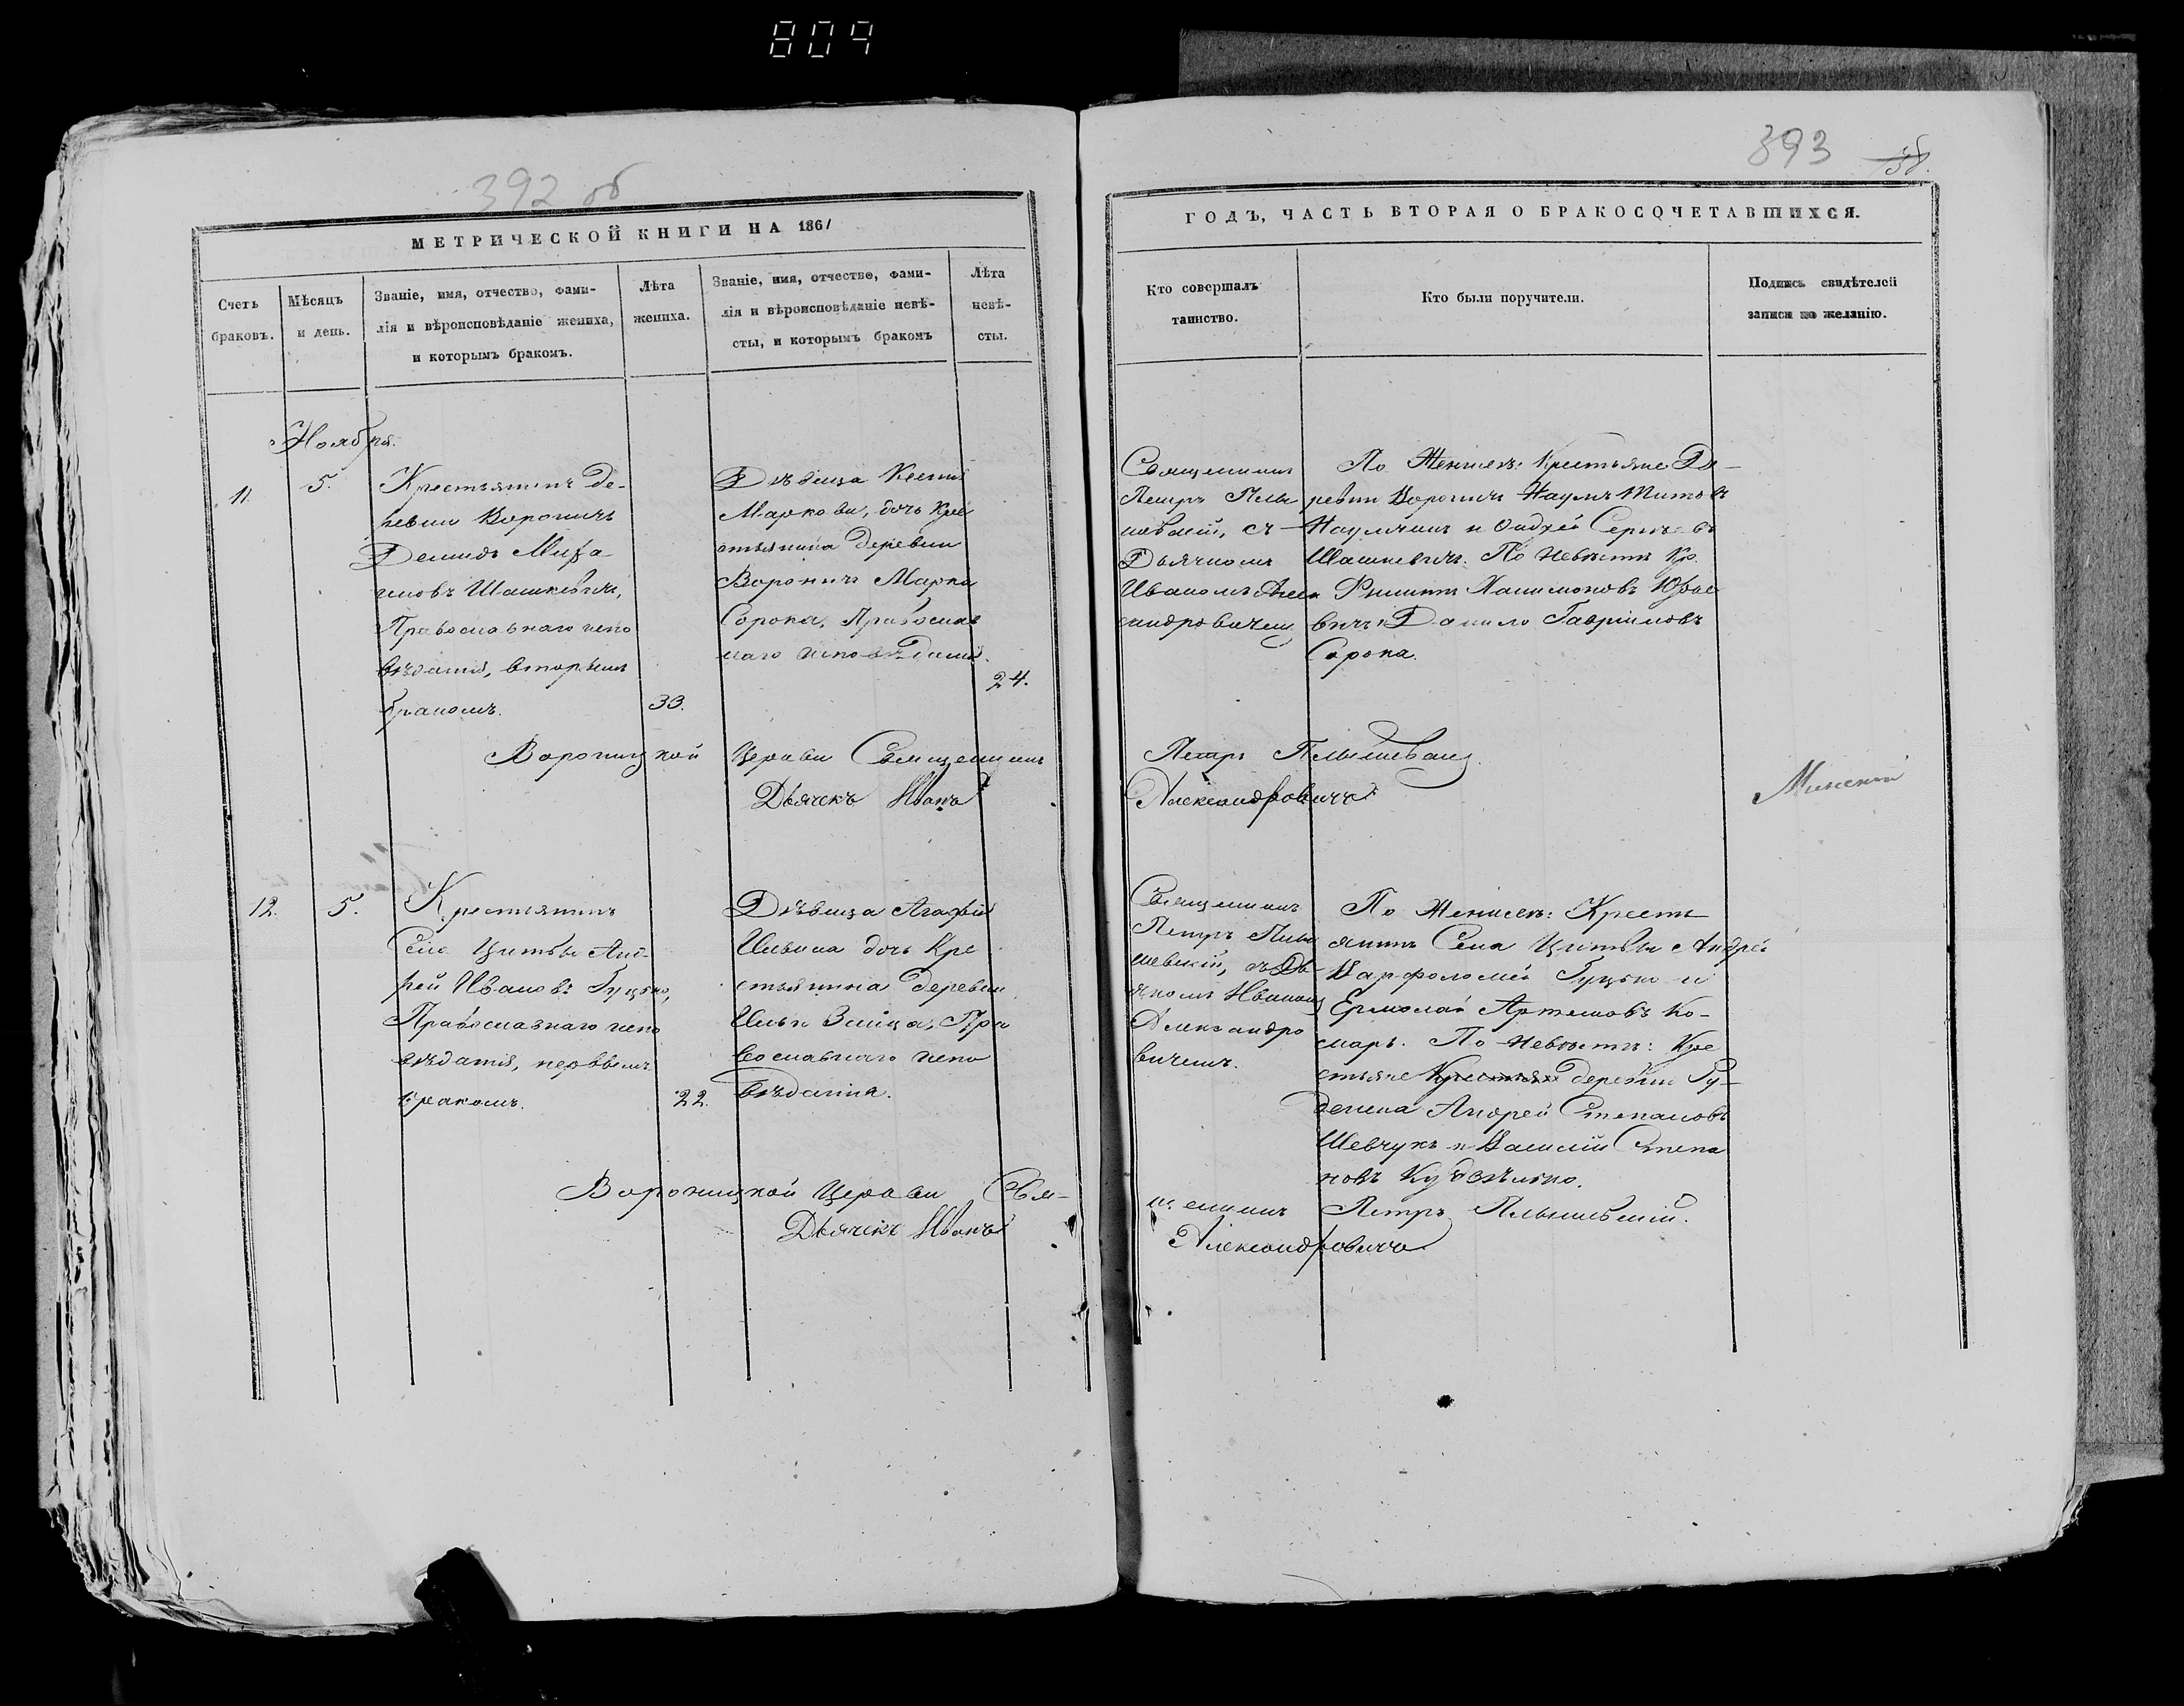 809
392 об
МЕТРИЧЕСКОЙ КНИГИ НА 1861
Счетъ браковъ.
Мѣсяцъ и день.
Званіе, имя, отчество, фами-
лія и вѣроисповѣданіе жениха,
и которымъ бракомъ.
Лѣта
жениха.
Званіе, имя, отчество, фами-
лія и вѣроисповѣданіе невѣ-
сты, и которымъ бракомъ
Лѣта
невѣ-
сты.
Ноября.
11.
5.
Крестьянинъ Де-
ревни Вороничъ
Демидъ
Шашкевичъ,
Православнаго испо
вѣданія, вторымъ
бракомъ.
33.
Дѣвица Ксенія
Маркова, дочь Кре
стьянина деревни
Вороничъ Марка
Сорока, Православ
наго исповѣданія.
24.
Вороницкой Церкви Священникъ
Дьячекъ Иванъ
12.
5.
Крестьянинъ
Села Цитвы Анд-
рей Ивановъ Гуцько,
Православнаго испо
вѣданія, первымъ
бракомъ.
22.
Дѣвица Агафія
Ильина дочь Кре
стьянина деревни
Ильи Пра
вославнаго испо
вѣданія.
Вороницкой Церкви Свя-
Дьячекъ Иванъ
393
ГОДЪ, ЧАСТЬ ВТОРАЯ О БРАКОСОЧЕТАВШИХСЯ.
Кто совершалъ
таинство.
Кто были поручители.
Подпись свидѣтелей
записи по желанію.
Священникъ
Петръ Плы
шевскій, съ
Дьячкомъ
Иваномъ Алек
сандровичемъ
По Женихѣ: Крестьяне Де-
ревни Вороничъ Наумъ Титовъ
Наумчикъ и Андрей
Шашкевичъ. По Невѣстѣ Кр.
Филимоновъ
вичъ и Данило Гавріиловъ
Сорока.
Петръ Плышевскій.
Александровичъ
Минскій
Священникъ
Петръ Плы
шевскій, съ Дь
ячкомъ Иваномъ
Александро
вичемъ.
По Женихѣ: Кресть
янинъ Села Цитвы Андрей
Варфоломей Гуцько и
Ермолай Артемовъ Ко-
маръ. По Невѣстѣ: Кре
стьяне Крестьяне деревни Ру-
денска Андрей Степановъ
Шевчукъ и Василій Степа
новъ
щенникъ Петръ Плышевскій.
Александровичъ